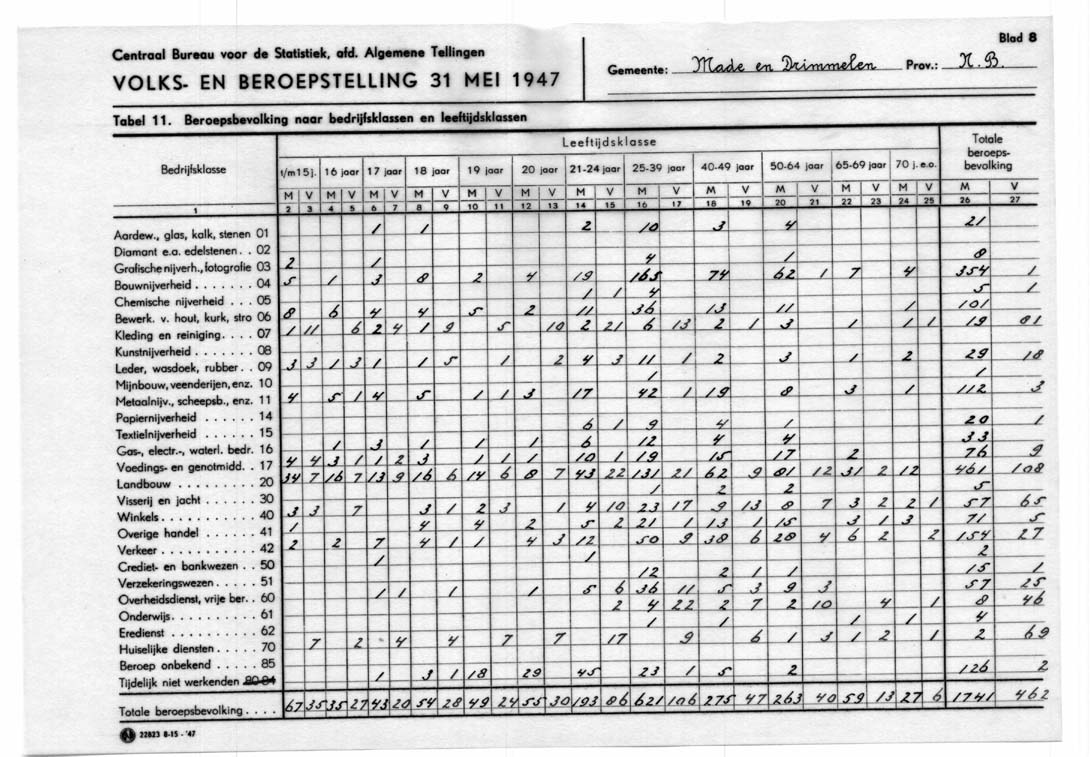 Centraal Bureau voor de Statistiek, afd. Algemene Tellingen
Blad 8
VOLKS- EN BEROEPSTELLING 31 MEI 1947
Gemeente: Made en Drimmelen Prov.: N.B.
Tabel 11. Beroepsbevolking naar bedrijfsklassen en leeftijdsklassen
Bedrijfsklasse
Leeftijdsklasse
Totale beroeps- bevolking
t/m 15 j. 16 jaar 17 jaar 18 jaar 19 jaar 20 jaar 21-24 jaar 25-39 jaar 40-49 jaar 50-64 jaar 65-69 jaar 70 j. e.o.
M V M V M V M V M V M V M V M V M V M V M V M V M V
1 2 3 4 5 6 7 8 9 10 11 12 13 14 15 16 17 18 19 20 21 22 23 24 25 26 27
Aardew., glas, kalk, stenen 01 1 1 2 10 3 4 21
Diamant e.a. edelstenen . . 02
Grafische nijverh., fotografie 03 2 1 4 1 8
Bouwnijverheid . . . . . . . 04 5 1 3 8 2 4 19 165 74 62 1 7 4 354 1
Chemische nijverheid . . . 05 1 1 4 5 1
Bewerk. v. hout, kurk, stro 06 8 6 4 4 5 2 11 36 13 11 1 101
Kleding en reiniging. . . . 07 1 11 6 2 4 1 9 5 10 2 21 6 13 2 1 3 1 1 1 19 81
Kunstnijverheid . . . . . . . 08
Leder, wasdoek, rubber . . 09 3 3 1 3 1 1 5 1 2 4 3 11 1 2 3 1 2 29 18
Mijnbouw, veenderijen, enz. 10 1 1
Metaalnijv., scheepsb., enz. 11 4 5 1 4 5 1 1 3 17 42 1 19 8 3 1 112 3
Papiernijverheid . . . . . . 14
Textielnijverheid . . . . . . 15 6 1 9 4 1 20 1
Gas-, electr.-, waterl. bedr. 16 1 3 1 1 1 6 12 4 4 33
Voedings- en genotmidd. . . 17 4 4 3 1 1 2 3 1 1 1 10 1 19 15 17 2 76 9
Landbouw . . . . . . . . . 20 34 7 16 7 13 9 16 6 14 6 8 7 43 22 131 21 62 9 81 12 31 2 12 461 108
Visserij en jacht . . . . . 30 1 2 2 5
Winkels . . . . . . . . . . . 40 3 3 7 3 1 2 3 1 4 10 23 17 9 13 8 7 3 2 2 1 57 65
Overige handel . . . . . . . 41 1 4 4 2 5 2 21 1 13 1 15 3 1 3 71 5
Verkeer . . . . . . . . . . . 42 2 2 7 4 1 1 4 3 12 50 9 38 6 28 4 6 2 2 154 27
Crediet- en bankwezen . . 50 1 1 2
Verzekeringswezen . . . . . 51 12 2 1 1 15 1
Overheidsdienst, vrije ber. . 60 1 1 1 1 5 6 36 11 5 3 9 3 57 25
Onderwijs. . . . . . . . . . 61 2 4 22 2 7 2 10 4 1 8 46
Eredienst . . . . . . . . . . 62 1 1 1 1 4
Huiselijke diensten . . . . . 70 7 2 4 4 7 7 17 9 6 1 3 1 2 1 2 69
Beroep onbekend . . . . . 85
Tijdelijk niet werkenden 80-84 1 3 1 18 29 45 23 1 5 2 126 2
Totale beroepsbevolking . . . . 67 35 35 27 43 20 54 28 49 24 55 30 193 86 621 106 275 47 263 40 59 13 27 6 1741 462
22823 8-15 - '47